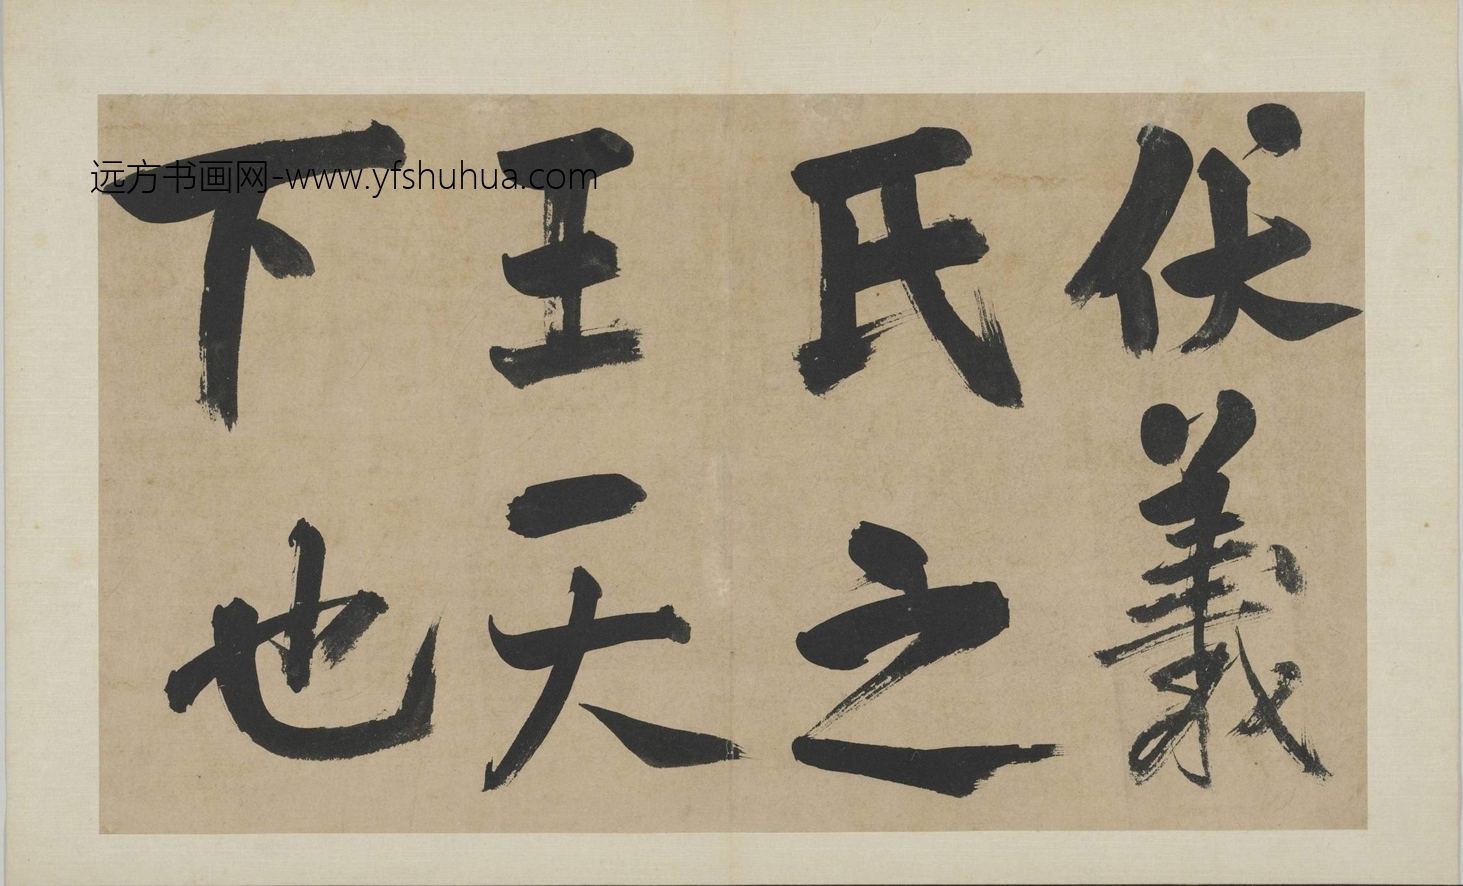 伏義
氏之
王天
下也
远方书画网-www.yfshuhua.com